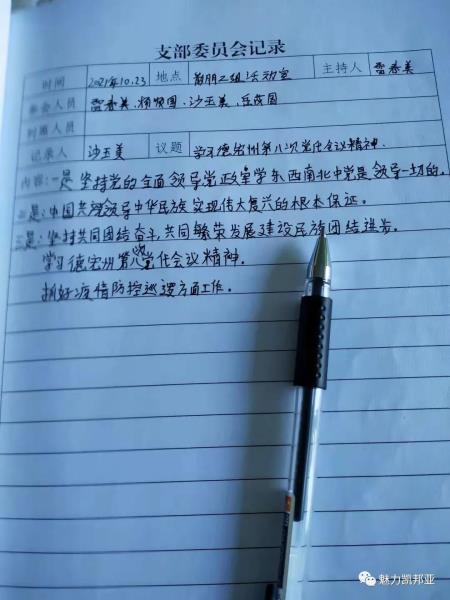 支部委员会记录
时间 2021.10.23 地点 二组活动室 主持人 雷春美
参会人员 雷春美、杨 国、沙玉美、岳
列席人员
记录人 沙玉美 议题 学习德宏州第八次党代会议精神.
内容:一是坚持党的全面领导党政军学东西南北中党是领导一切的.
二是:中国共领导中华民族实现伟大复兴的根本保证.
三是:坚持共同团结奋斗,共同繁荣发展建设民族团结进步.
学习德宏州第八次党代会议精神.
抓好疫情防控巡逻方面工作.
魅力凯邦亚